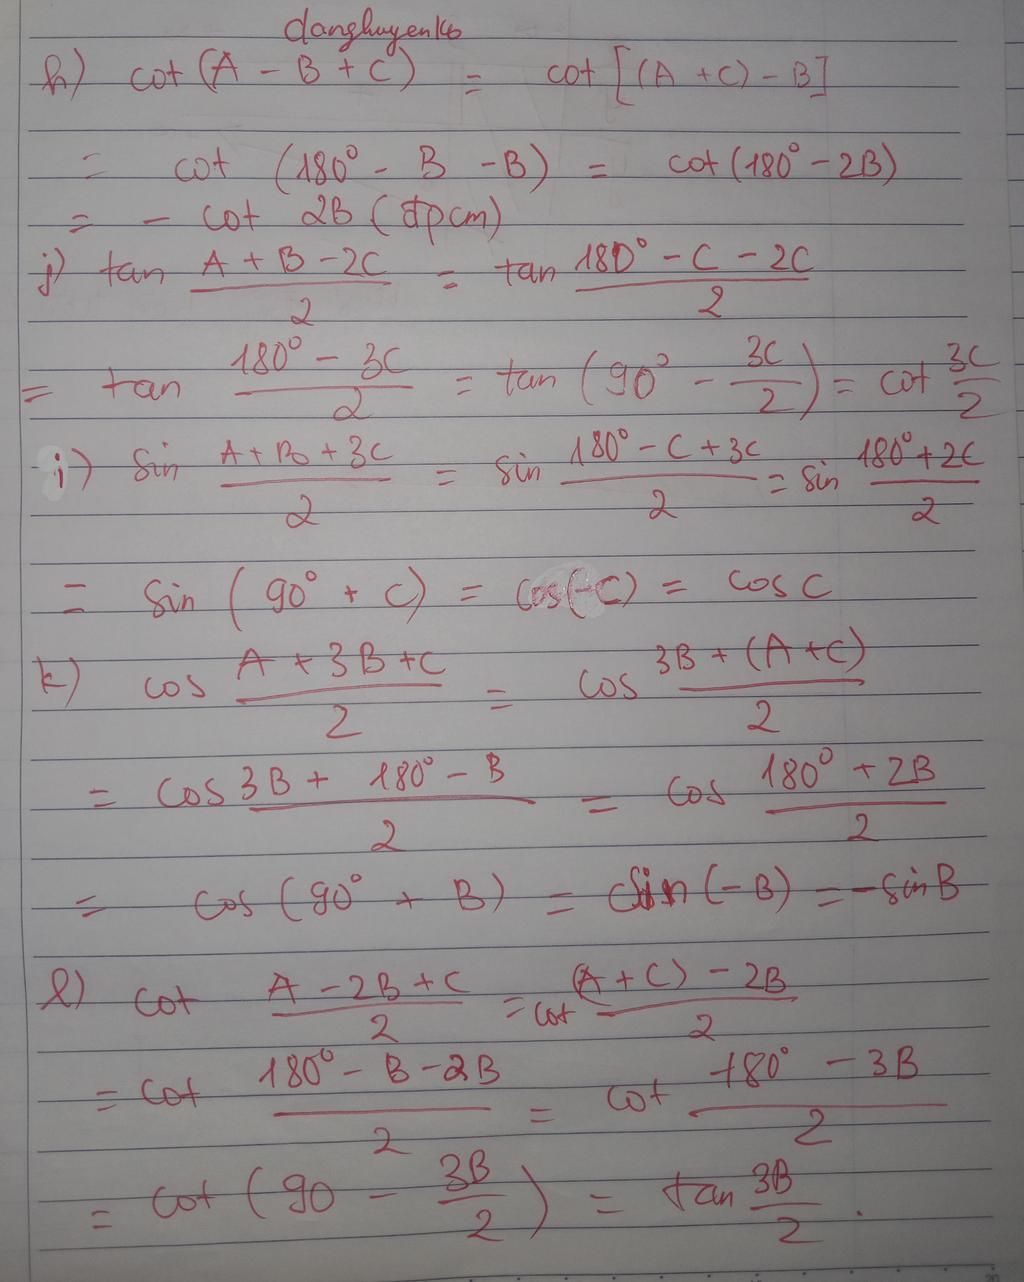 danghuyen16
h) cot (A - B + C) = cot [(A + C) - B]
= cot (180° - B - B) = cot (180° - 2B)
= - cot 2B (đpcm)
j) tan (A + B - 2C)/2 = tan (180° - C - 2C)/2
= tan (180° - 3C)/2 = tan (90° - 3C/2) = cot 3C/2
i) sin (A + B + 3C)/2 = sin (180° - C + 3C)/2 = sin (180° + 2C)/2
= sin (90° + C) = cos(-C) = cos C
k) cos (A + 3B + C)/2 = cos (3B + (A + C))/2
= cos (3B + 180° - B)/2 = cos (180° + 2B)/2
= cos (90° + B) = sin (-B) = -sin B
l) cot (A - 2B + C)/2 = cot ((A + C) - 2B)/2
= cot (180° - B - 2B)/2 = cot (180° - 3B)/2
= cot (90 - 3B/2) = tan 3B/2 .